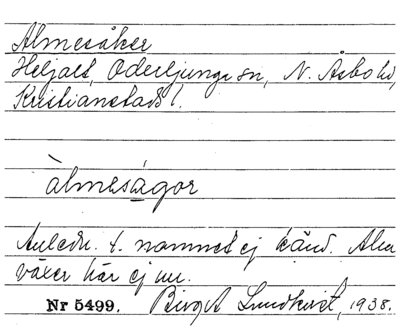 Almesåker
Heljalt, Oderljunga sn, N. Åsbo hd,
Kristianstads l.
àlmeságor
Anledn. t. namnet ej känd. Alm
växer här ej nu.
Nr 5499. Birgit Lundkvist, 1938.